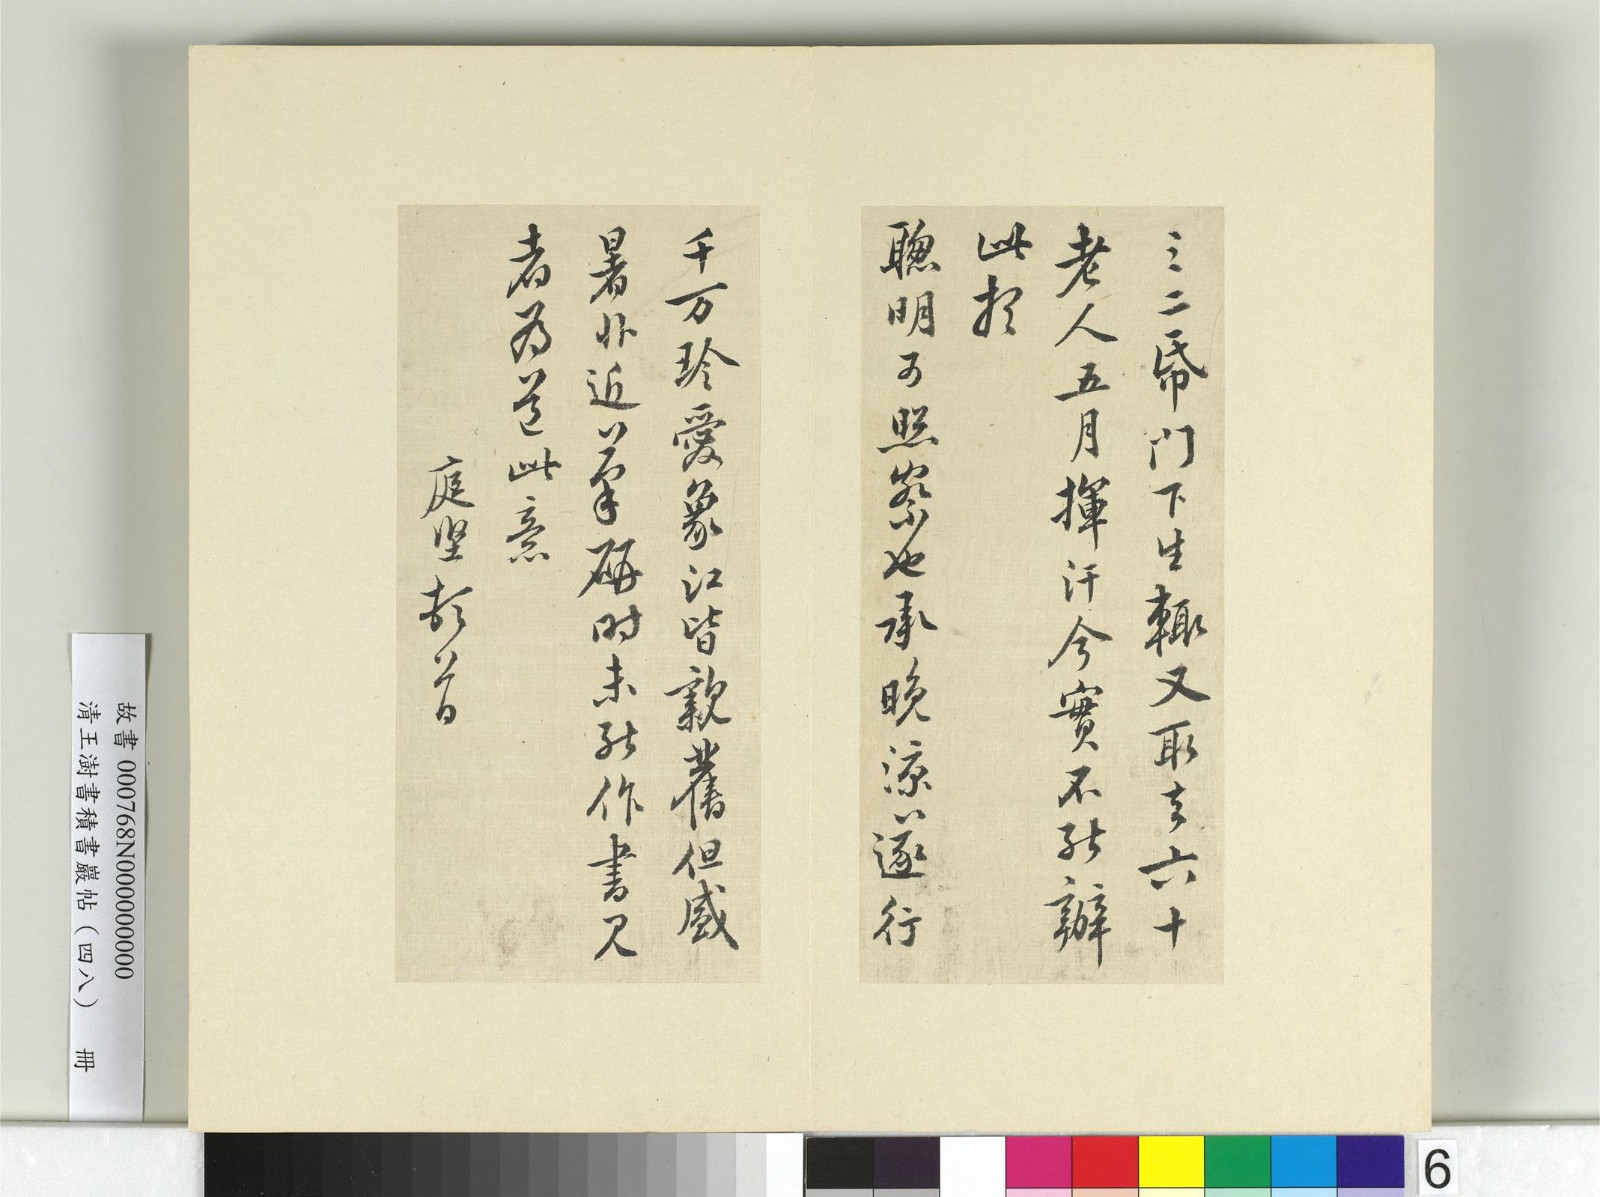 三二昏門下生輒又取去六十
老人五月揮汗今實不能辦
此想
聰明可照察也承晚涼遂行
千万珍愛象江皆親舊但盛
暑非近筆硯時未能作書見
者為道此意
庭堅頓首
故書 000768N000000000
清王澍書積書巖帖（四八） 冊
6